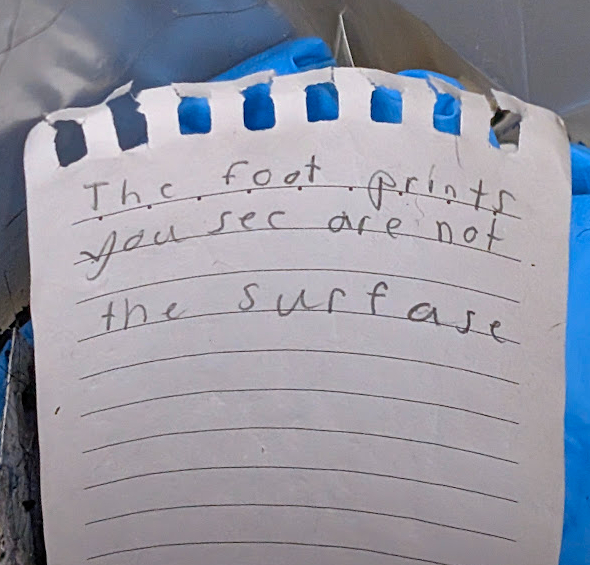 The foot prints
you see are not
the surfase